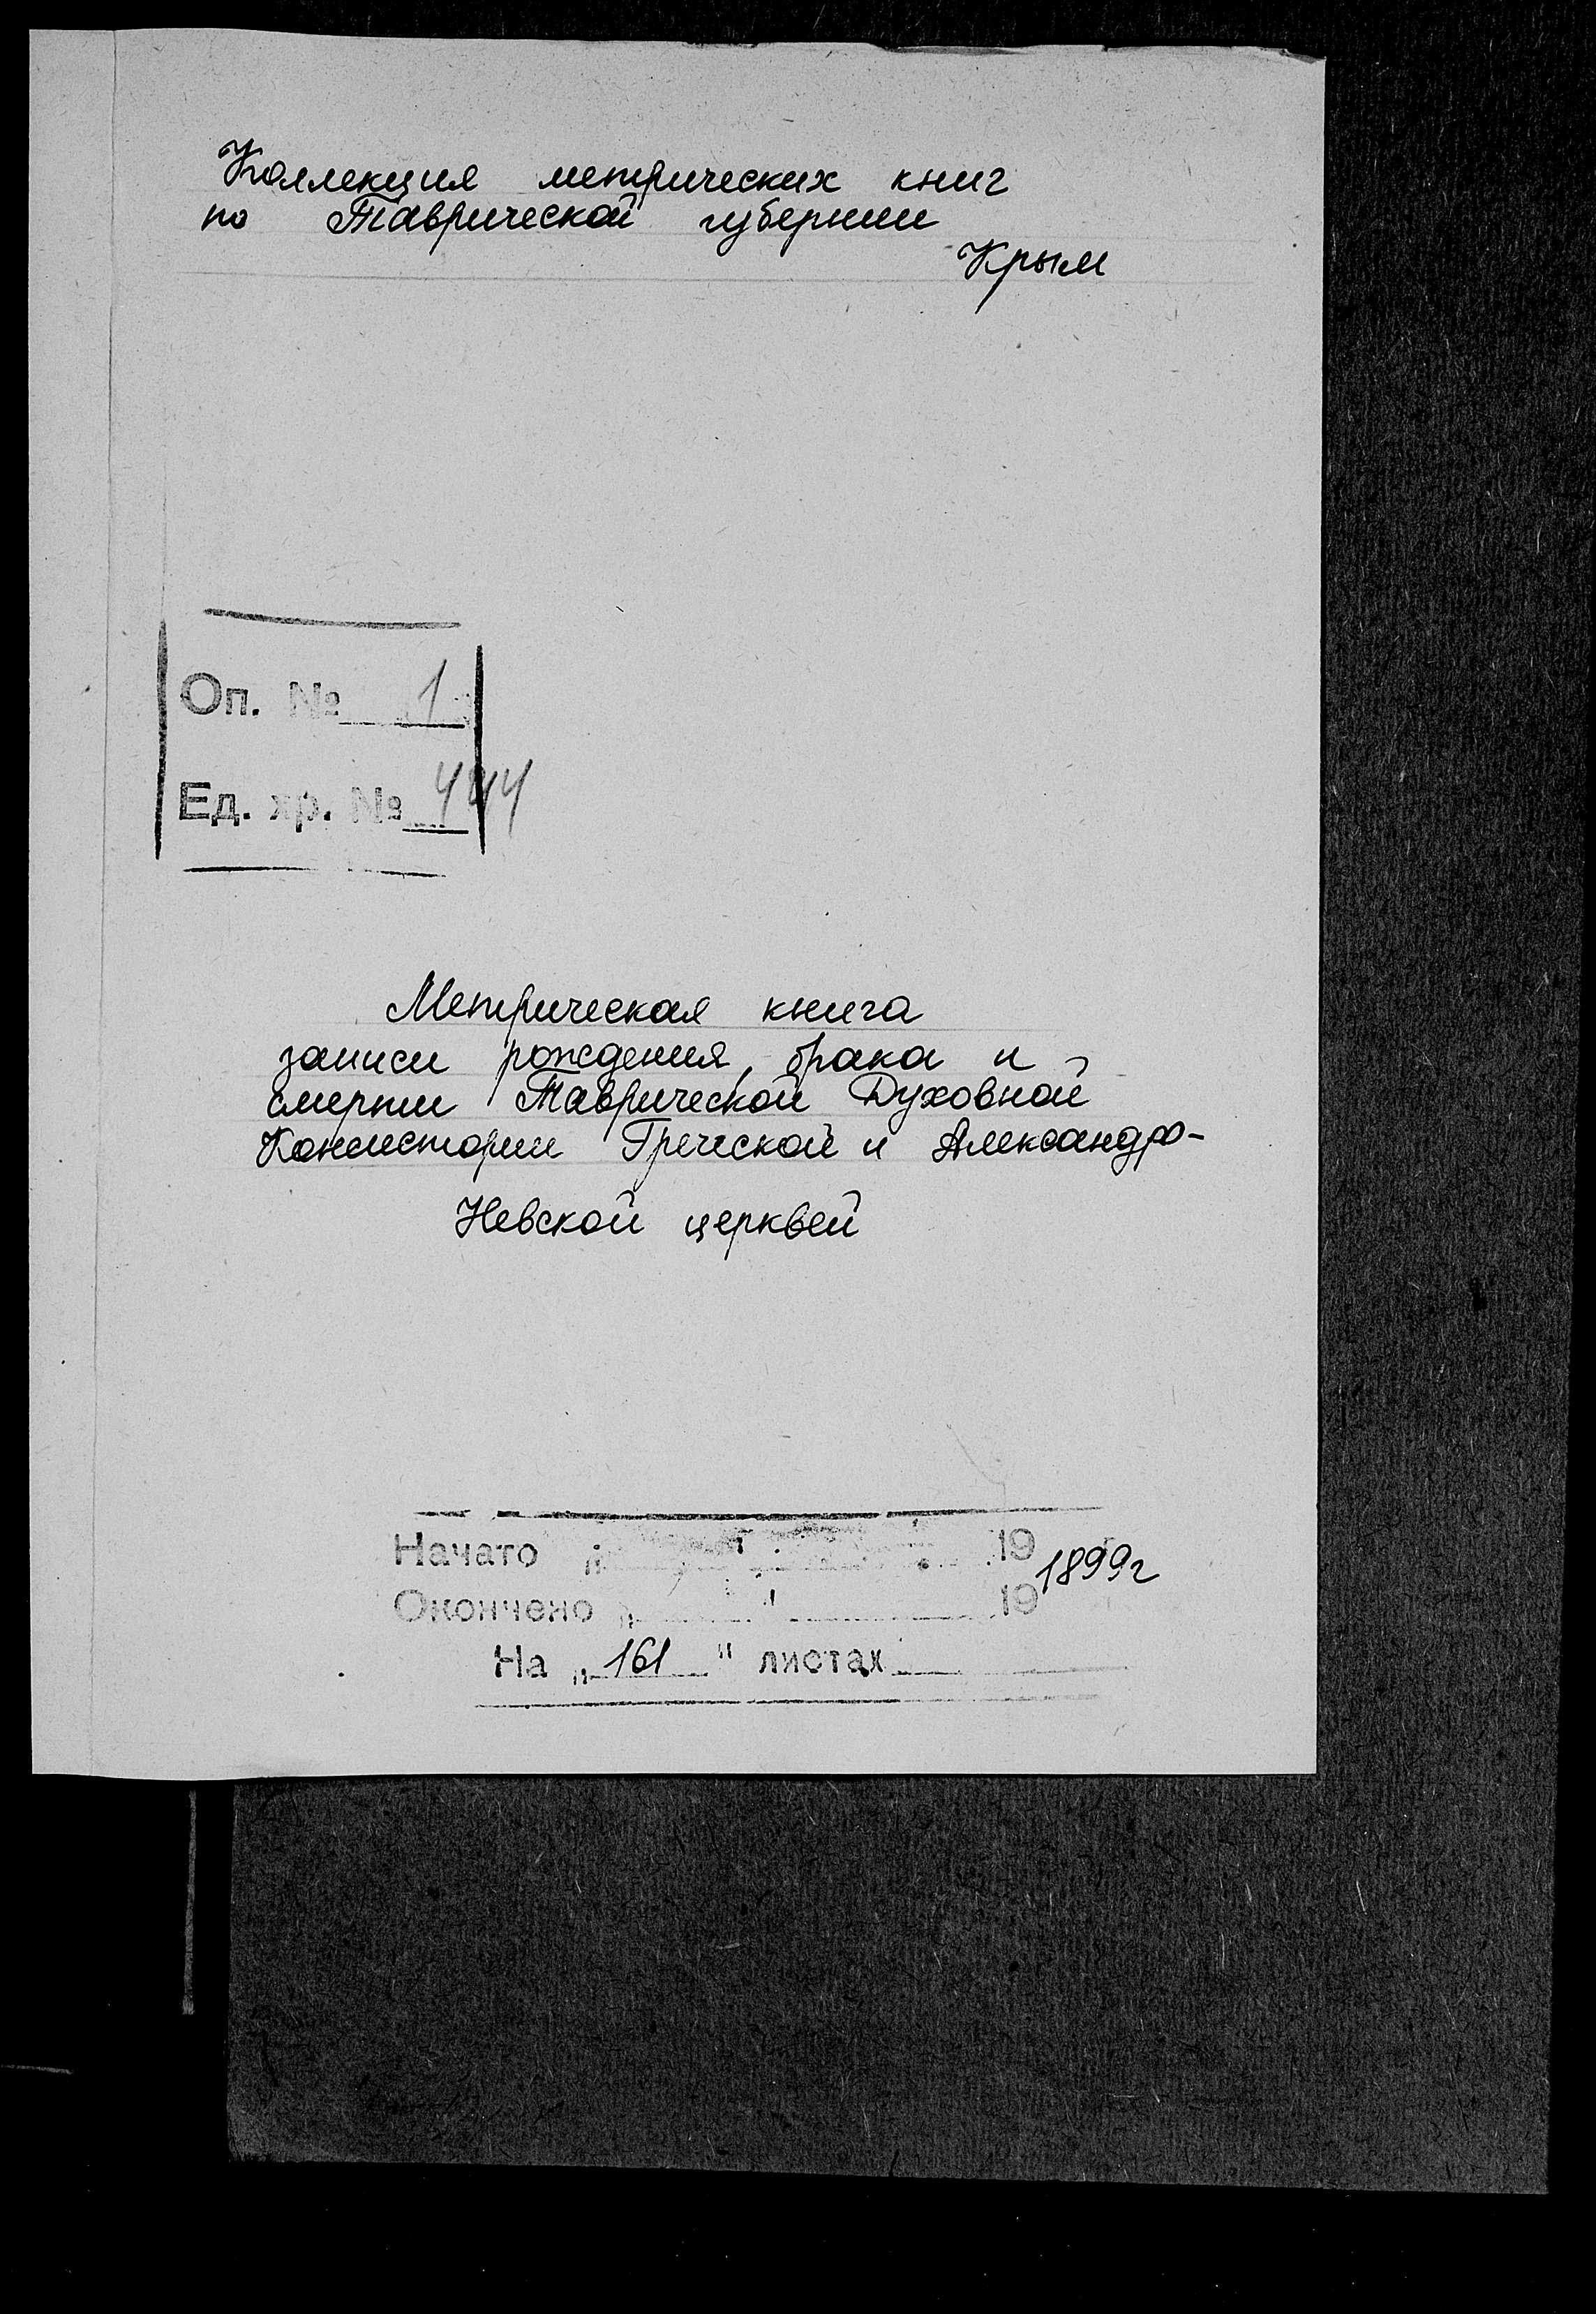 Коллекция метрических книг
по Таврической губернии
Крым
Оп. № 1
Ед. хр. № 444
Метрическая книга
записи рождения, брака и
смерти Таврической Духовной
Консистории Греческой и Александро-
Невской церквей
Начато „ " 19
1899г
Окончено „ " 19
На „ 161 " листах